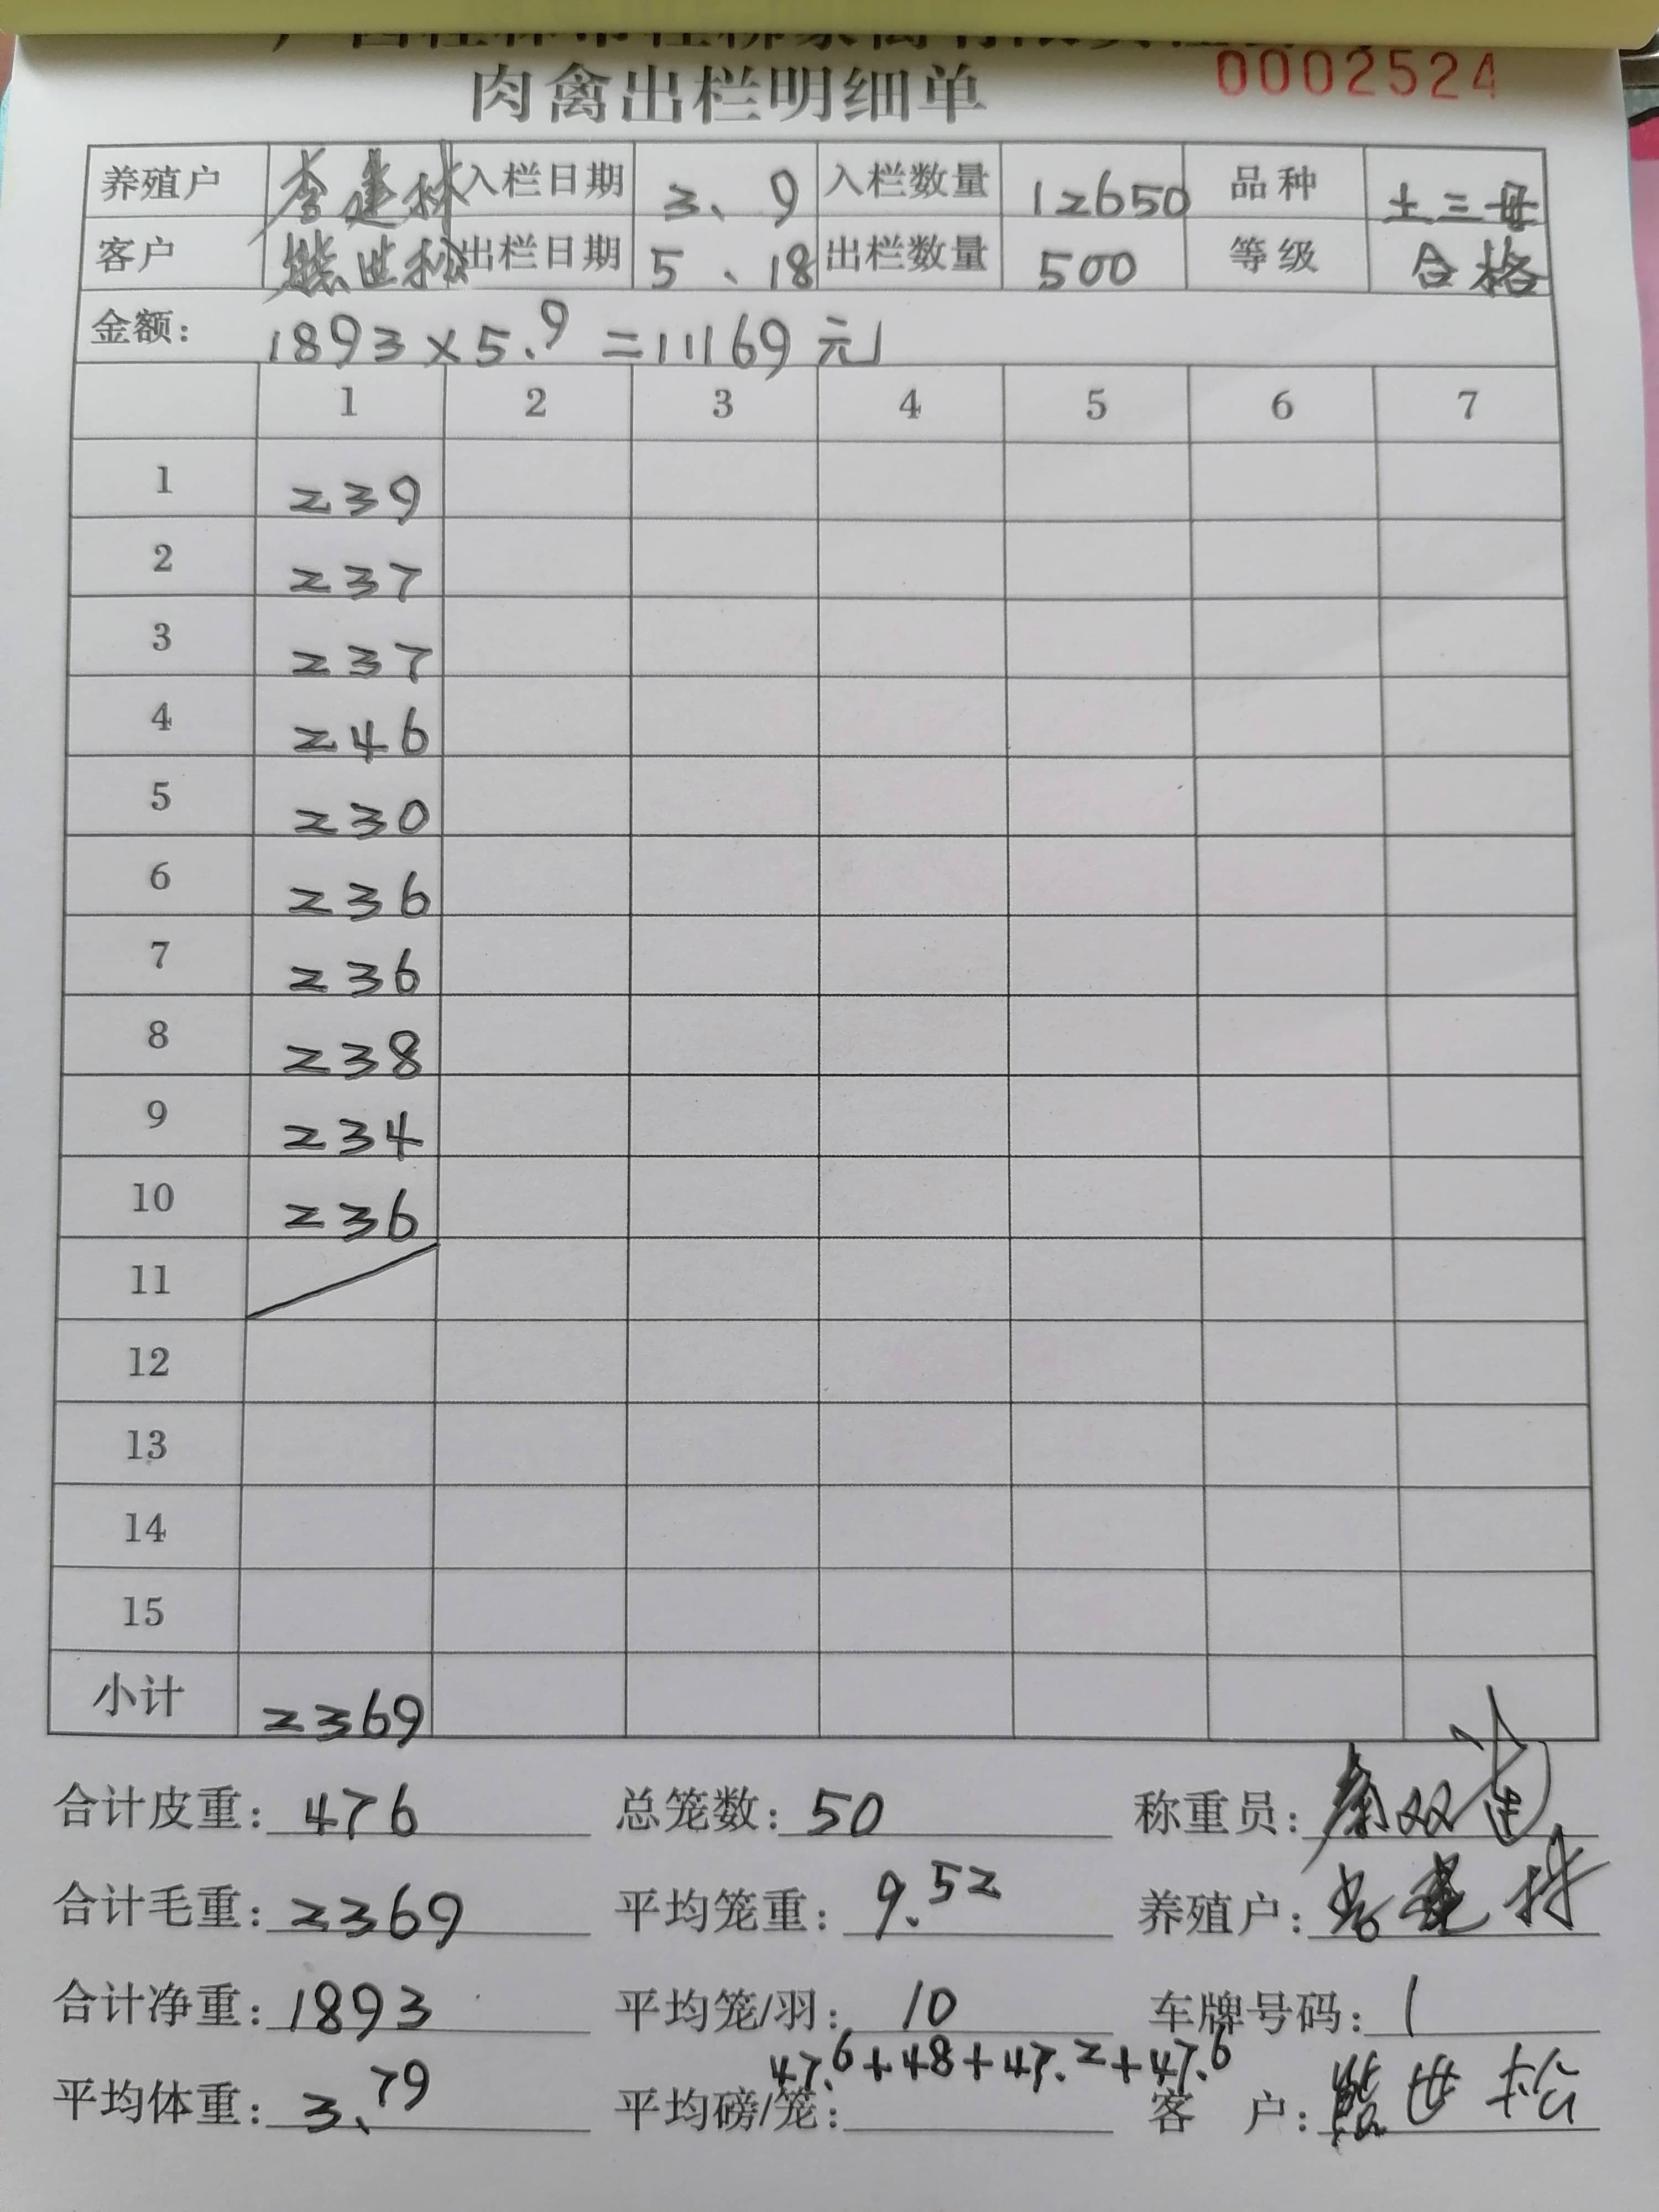 肉禽出栏明细单 0002524
养殖户 李建林 入栏日期 3、9 入栏数量 12650 品种 土三母
客户 熊世松 出栏日期 5、18 出栏数量 500 等级 合格
金额: 1893×5.9=11169元
1 2 3 4 5 6 7
1 239
2 237
3 237
4 246
5 230
6 236
7 236
8 238
9 234
10 236
11
12
13
14
15
小计 2369
合计皮重: 476 总笼数: 50 称重员:
合计毛重: 2369 平均笼重: 9.52 养殖户: 李建林
合计净重: 1893 平均笼/羽: 10 车牌号码: 1
47.6+48+47.2+47.6
平均体重: 3.79 平均磅/笼: 客 户: 熊世松